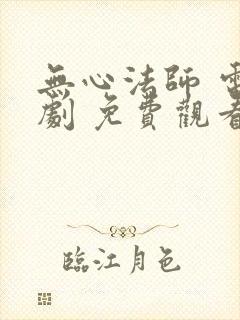 無心法師 電
劇 免費觀看
臨江月色